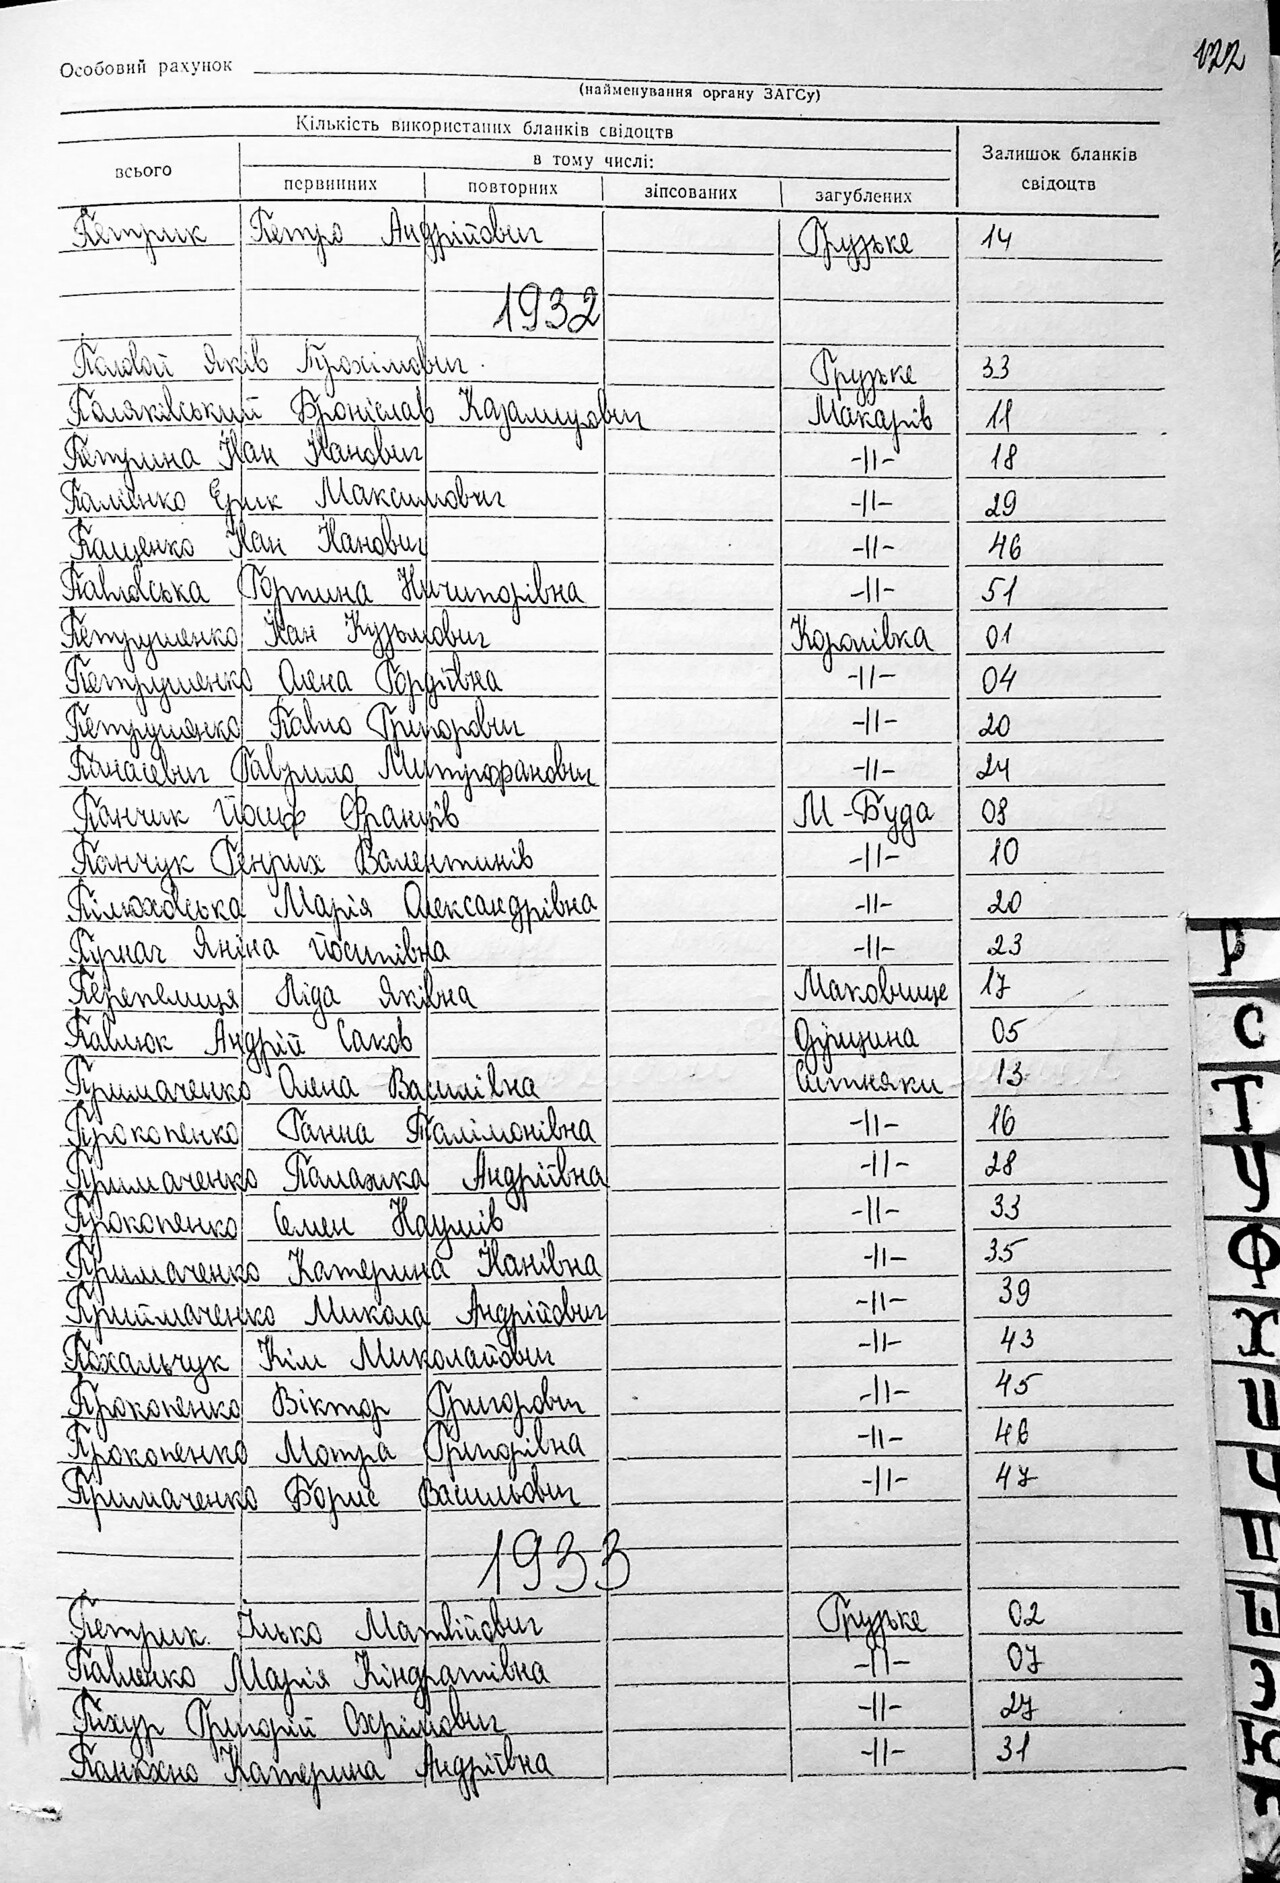 122
Особовий рахунок
(найменування органу ЗАГСу)
Кількість використаних бланків свідоцтв
Залишок бланків свідоцтв
всього
в тому числі:
первинних повторних зіпсованих загублених
Петрик Петро Андрійович Грузьке 14
1932
Половой Яків Трохімович Грузьке 33
Поляківський Броніслав Казамирович Макарів 11
Петрина Іван Іванович -||- 18
Палієнко Ерик Максимович -||- 29
Пащенко Іван Іванович -||- 46
Павловська Гортина Ничипорівна -||- 51
Петрушенко Іван Кузьмович Королівка 01
Петрушенко Олена Гордіївна -||- 04
Петрушенко Павло Григорович -||- 20
Панасевич Гаврило Митрофанович -||- 24
Панчик Йосиф Франців М-Буда 08
Панчук Генрих Валентинів -||- 10
Пілюховська Марія Олександрівна -||- 20
Пурнач Яніна Йосипівна -||- 23
Перепелиця Ліда Яківна Маковище 17
Павлюк Андрій Саков 05
Примаченко Олена Василівна Ситняки 13
Прокопенко Ганна Палімонівна -||- 16
Примаченко Палажка Андріївна -||- 28
Прокопенко Семен Наумів -||- 33
Примаченко Катерина Іванівна -||- 35
Приймаченко Микола Андрійович -||- 39
Пахальчук Кім Миколайович -||- 43
Прокопенко Віктор Григорович -||- 45
Прокопенко Мотра Григорівна -||- 46
Примаченко Борис Васильович -||- 47
1933
Петрик Ілько Матвійович Грузьке 02
Павленко Марія Кіндратівна -||- 07
Піхур Григорій Охрімович -||- 27
Катерина Андріївна -||- 31
Р
С
Т
У
Ф
Х